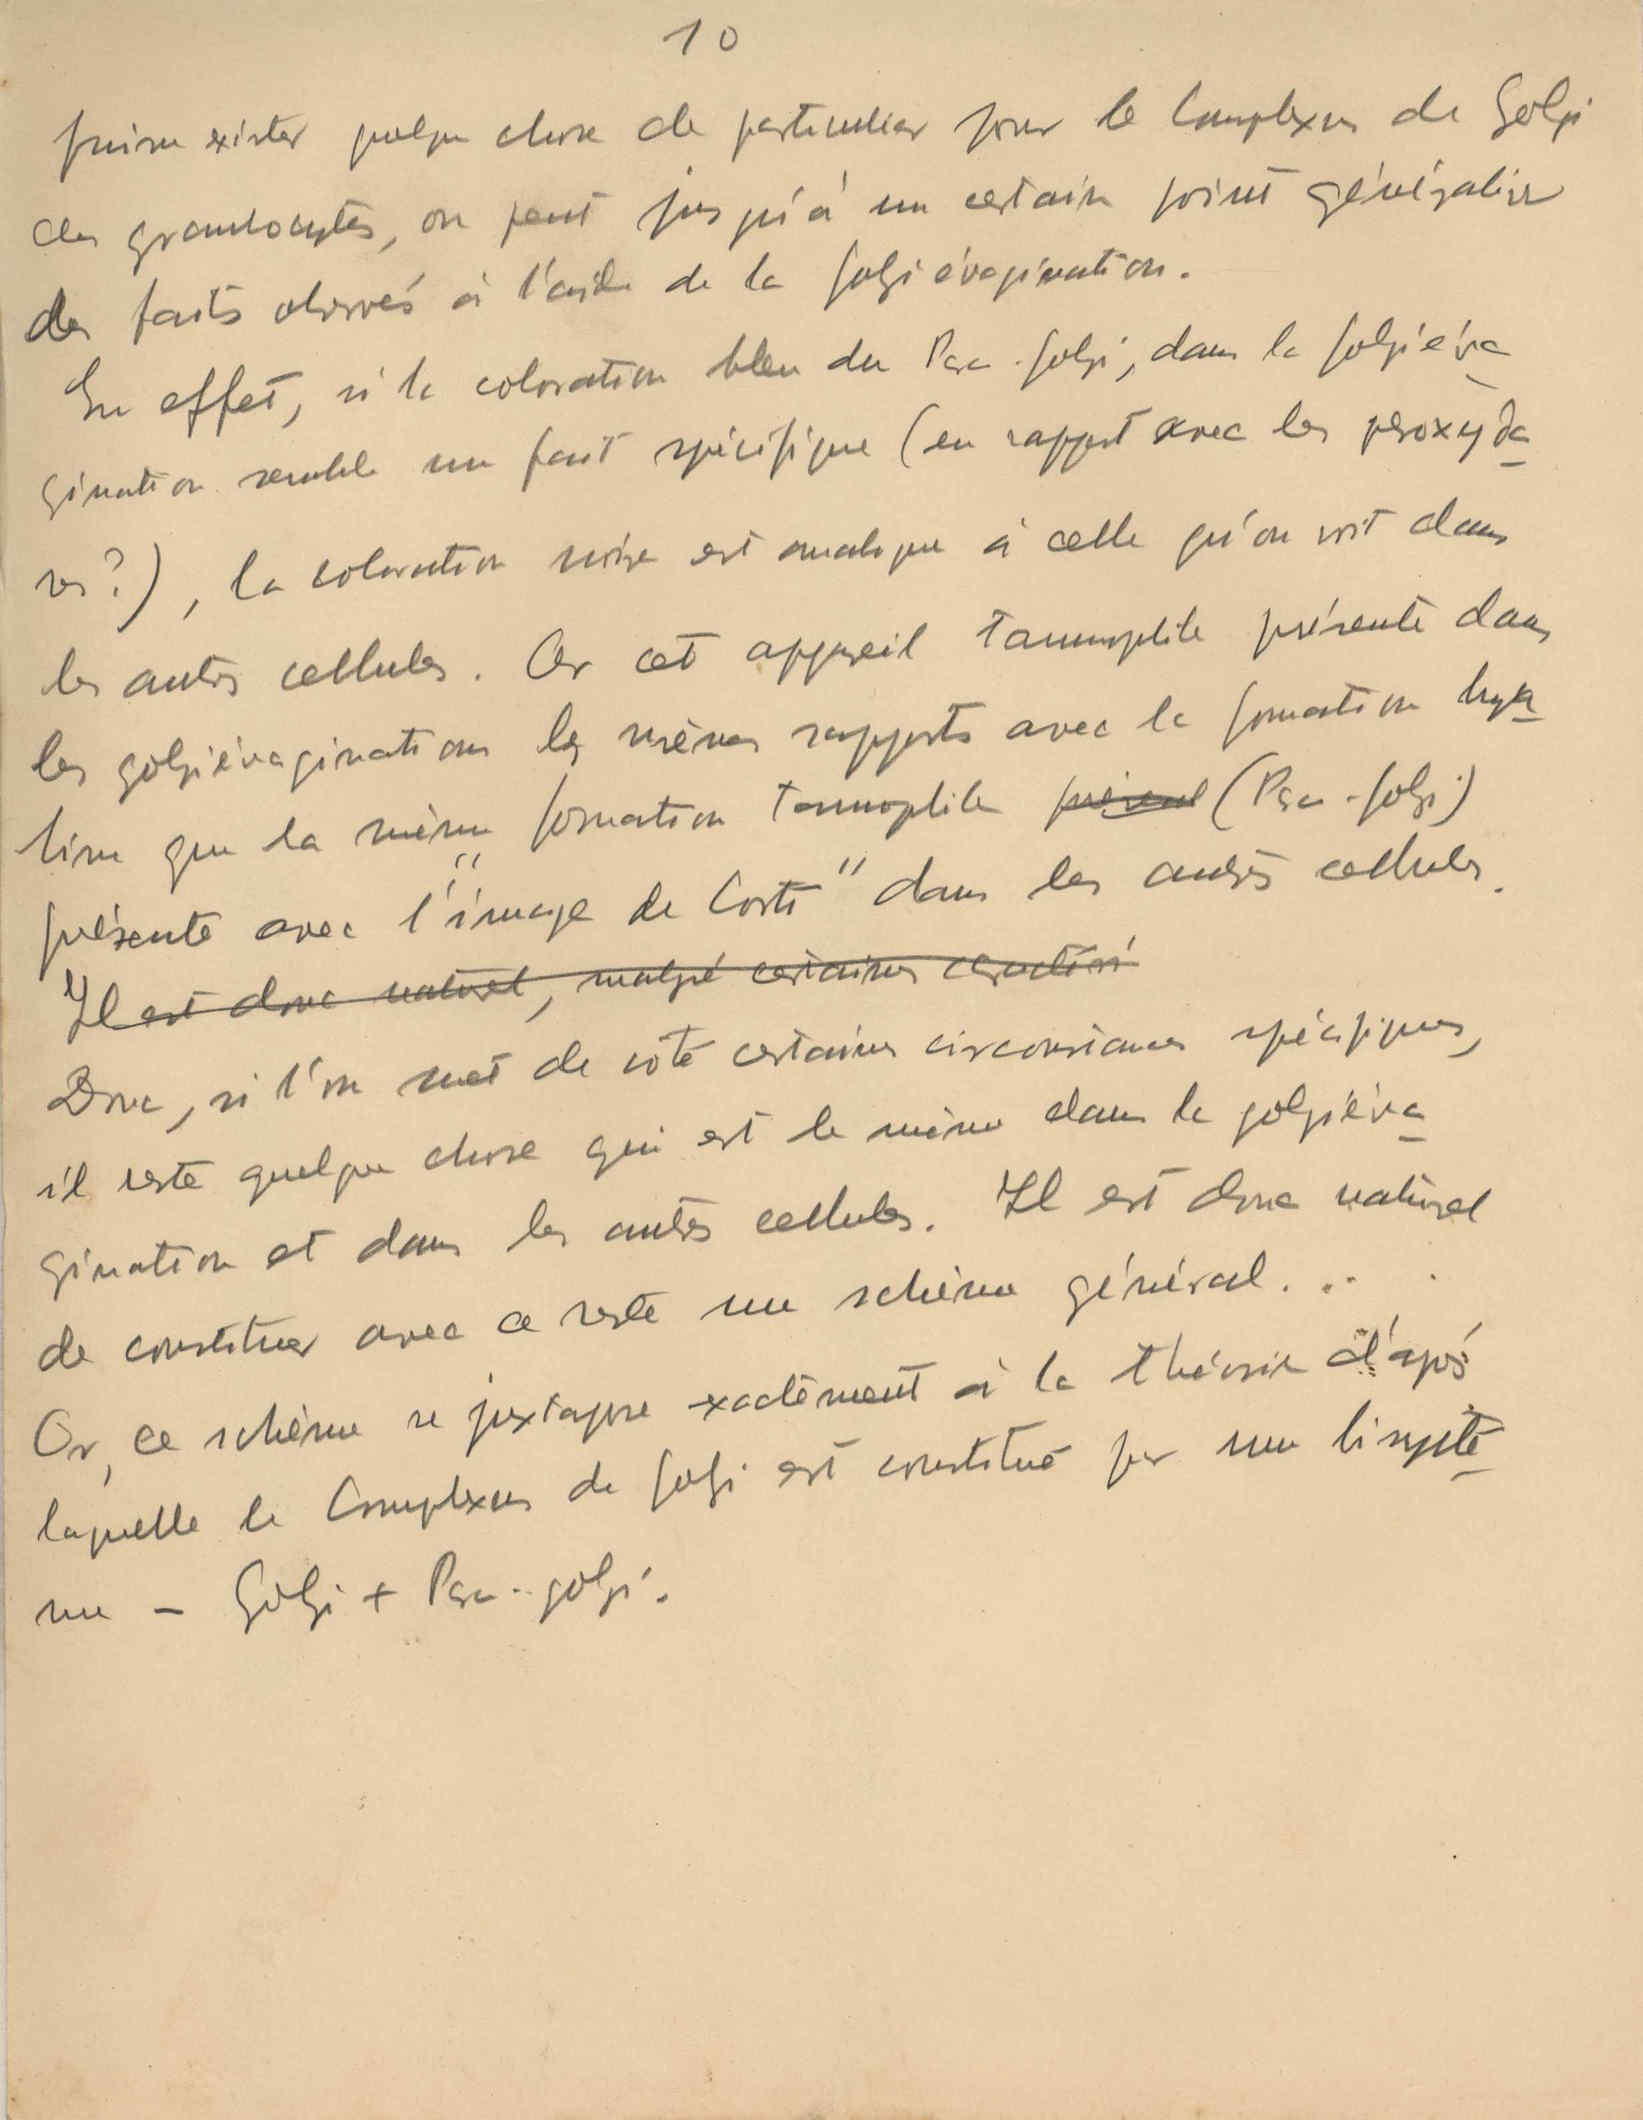 10
puisse exister quelque chose de particulier pour le Complexus de Golgi
des granulocytes, on peut jusqu'à un certain point généraliser
des faits observés à l'aide de la golgiévagination.
En effet, si la coloration bleu du Para-golgi, dans la golgiéva
gination semble un fait spécifique (en rapport avec les peroxyda
ses?), la coloration noire est analogue à celle qu'on voit dans
les autres cellules. Or cet appareil tannophile présente dans
les golgiévaginations les mêmes rapports avec la formation hya
line que la même formation tannophile présent (Para-golgi)
présente avec l'"image de Corti" dans les autres cellules.
Il est donc naturel, malgré certaines
Donc, si l'on met de côté certaines circonstances spécifiques,
il reste quelque chose qui est le même dans la golgiéva
gination et dans les autres cellules. Il est donc naturel
de constituer avec ce reste un schème général...
Or, ce schème se juxtapose exactement à la théorie d'après
laquelle le Complexus de Golgi est constitué par un
me - Golgi + Para-golgi.